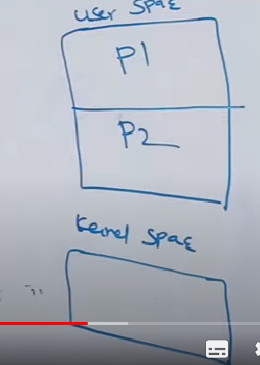 User Spae
P1
P2
Kernel Spae